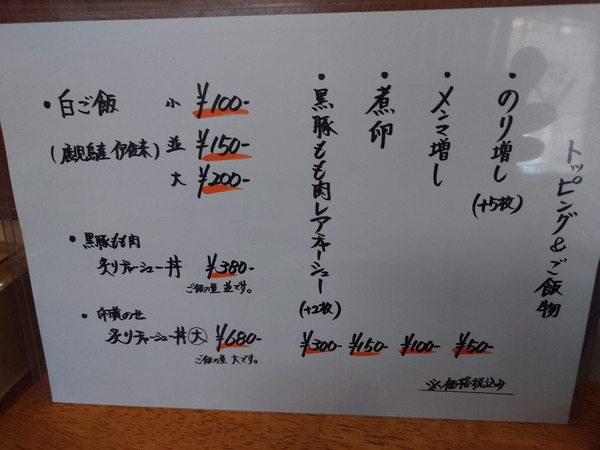 トッピング&ご飯物
・のり増し
(+5枚)
¥50-
・メンマ増し
¥100-
・煮卵
¥150-
・黒豚もも肉レアチャーシュー
(+2枚)
¥300-
・白ご飯 小 ¥100-
(鹿児島産 伊佐米) 並 ¥150-
大 ¥200-
・黒豚もも肉
炙りチャーシュー丼 ¥380-
ご飯の量 並です。
・卵黄のせ
炙りチャーシュー丼 大 ¥680-
ご飯の量 大です。
※価格税込み